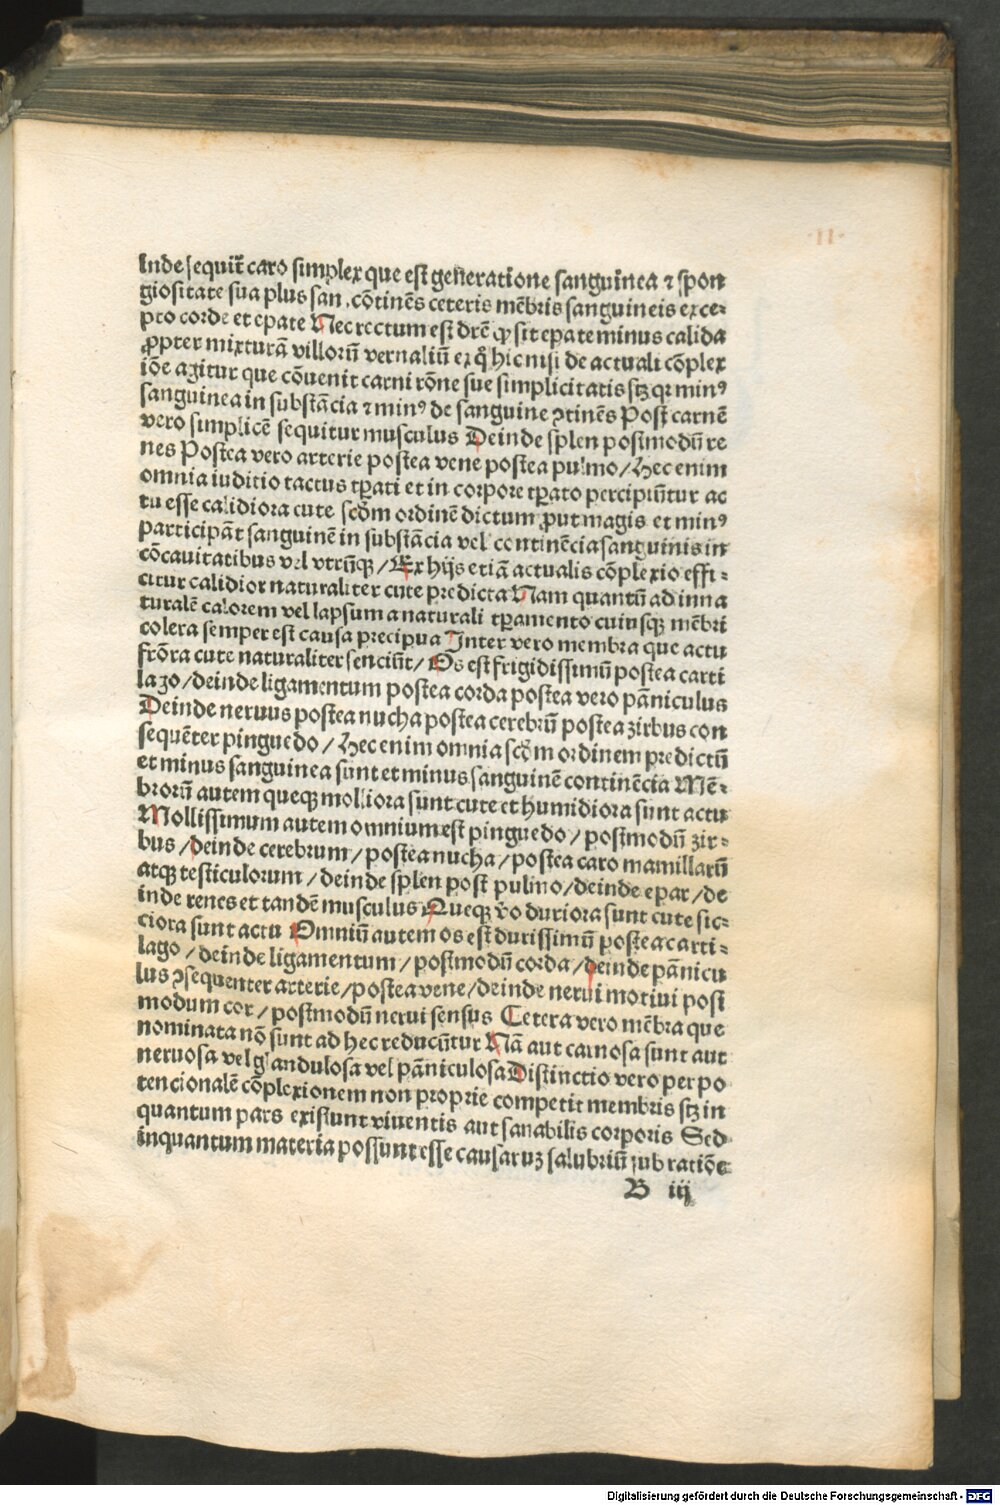 ·11·
Inde sequit̃ caro simplex que est generatione sanguinea ⁊ spon
giositate sua plus san. cōtinēs ceteris mēbris sanguineis exce-
pto corde et epate Nec rectum est drē ꝙ sit epate minus calida
ꝓpter mixturā villorū vernaliū ex qͦ hic nisi de actuali cōplex
iōe agitur que cōuenit carni rōne sue simplicitatis scꝫ qꝛ minꝰ
sanguinea in substācia ⁊ minꝰ de sanguine ꝯtinēs Post carnē
vero simplicē sequitur musculus Deinde splen postmodū re
nes Postea vero arterie postea vene postea pulmo / Hec enim
omnia iuditio tactus tꝑati et in corpore tꝑato percipiūtur ac
tu esse calidiora cute scḋm ordinē dictum ꝓut magis et minꝰ
participāt sanguinē in substācia vel continēcia sanguinis in
cōcauitatibus vel vtrūqꝫ / Ex hijs etiā actualis cōplexio effi-
citur calidior naturaliter cute predicta Nam quantū ad inna
turalē calorem vel lapsum a naturali tꝑamento cuiusqꝫ mēbri
colera semper est causa precipua Inter vero membra que actu
frōra cute naturaliter senciūt / Os est frigidissimū postea carti
lago / deinde ligamentum postea corda postea vero pāniculus
Deinde neruus postea nucha postea cerebrū postea zirbus con
sequēter pinguedo / Hec enim omnia scḋm ordinem predictū
et minus sanguinea sunt et minus sanguinē continēcia Mē-
brorū autem queqꝫ molliora sunt cute et humidiora sunt actu
Mollissimum autem omnium est pinguedo / postmodū zir-
bus / deinde cerebrum / postea nucha / postea caro mamillarū
atqꝫ testiculorum / deinde splen post pulmo / deinde epar / de
inde renes et tandē musculus Queqꝫ v̄o duriora sunt cute sic-
ciora sunt actu Omniū autem os est durissimū postea carti-
lago / deinde ligamentum / postmodū corda / deinde pānicu
lus ꝯsequenter arterie / postea vene / deinde nerui motiui post
modum cor / postmodū nerui sensus Cetera vero mēbra que
nominata nō sunt ad hec reducūtur Nā aut carnosa sunt aut
neruosa vel glandulosa vel pāniculosa Distinctio vero per po
tencionalē cōplexionem non proprie competit membris scꝫ in
quantum pars existunt viuentis aut sanabilis corporis Sed
inquantum materia possunt esse causaruꝫ salubriū sub ratiōe
B iij
Digitalisierung gefördert durch die Deutsche Forschungsgemeinschaft - DFG